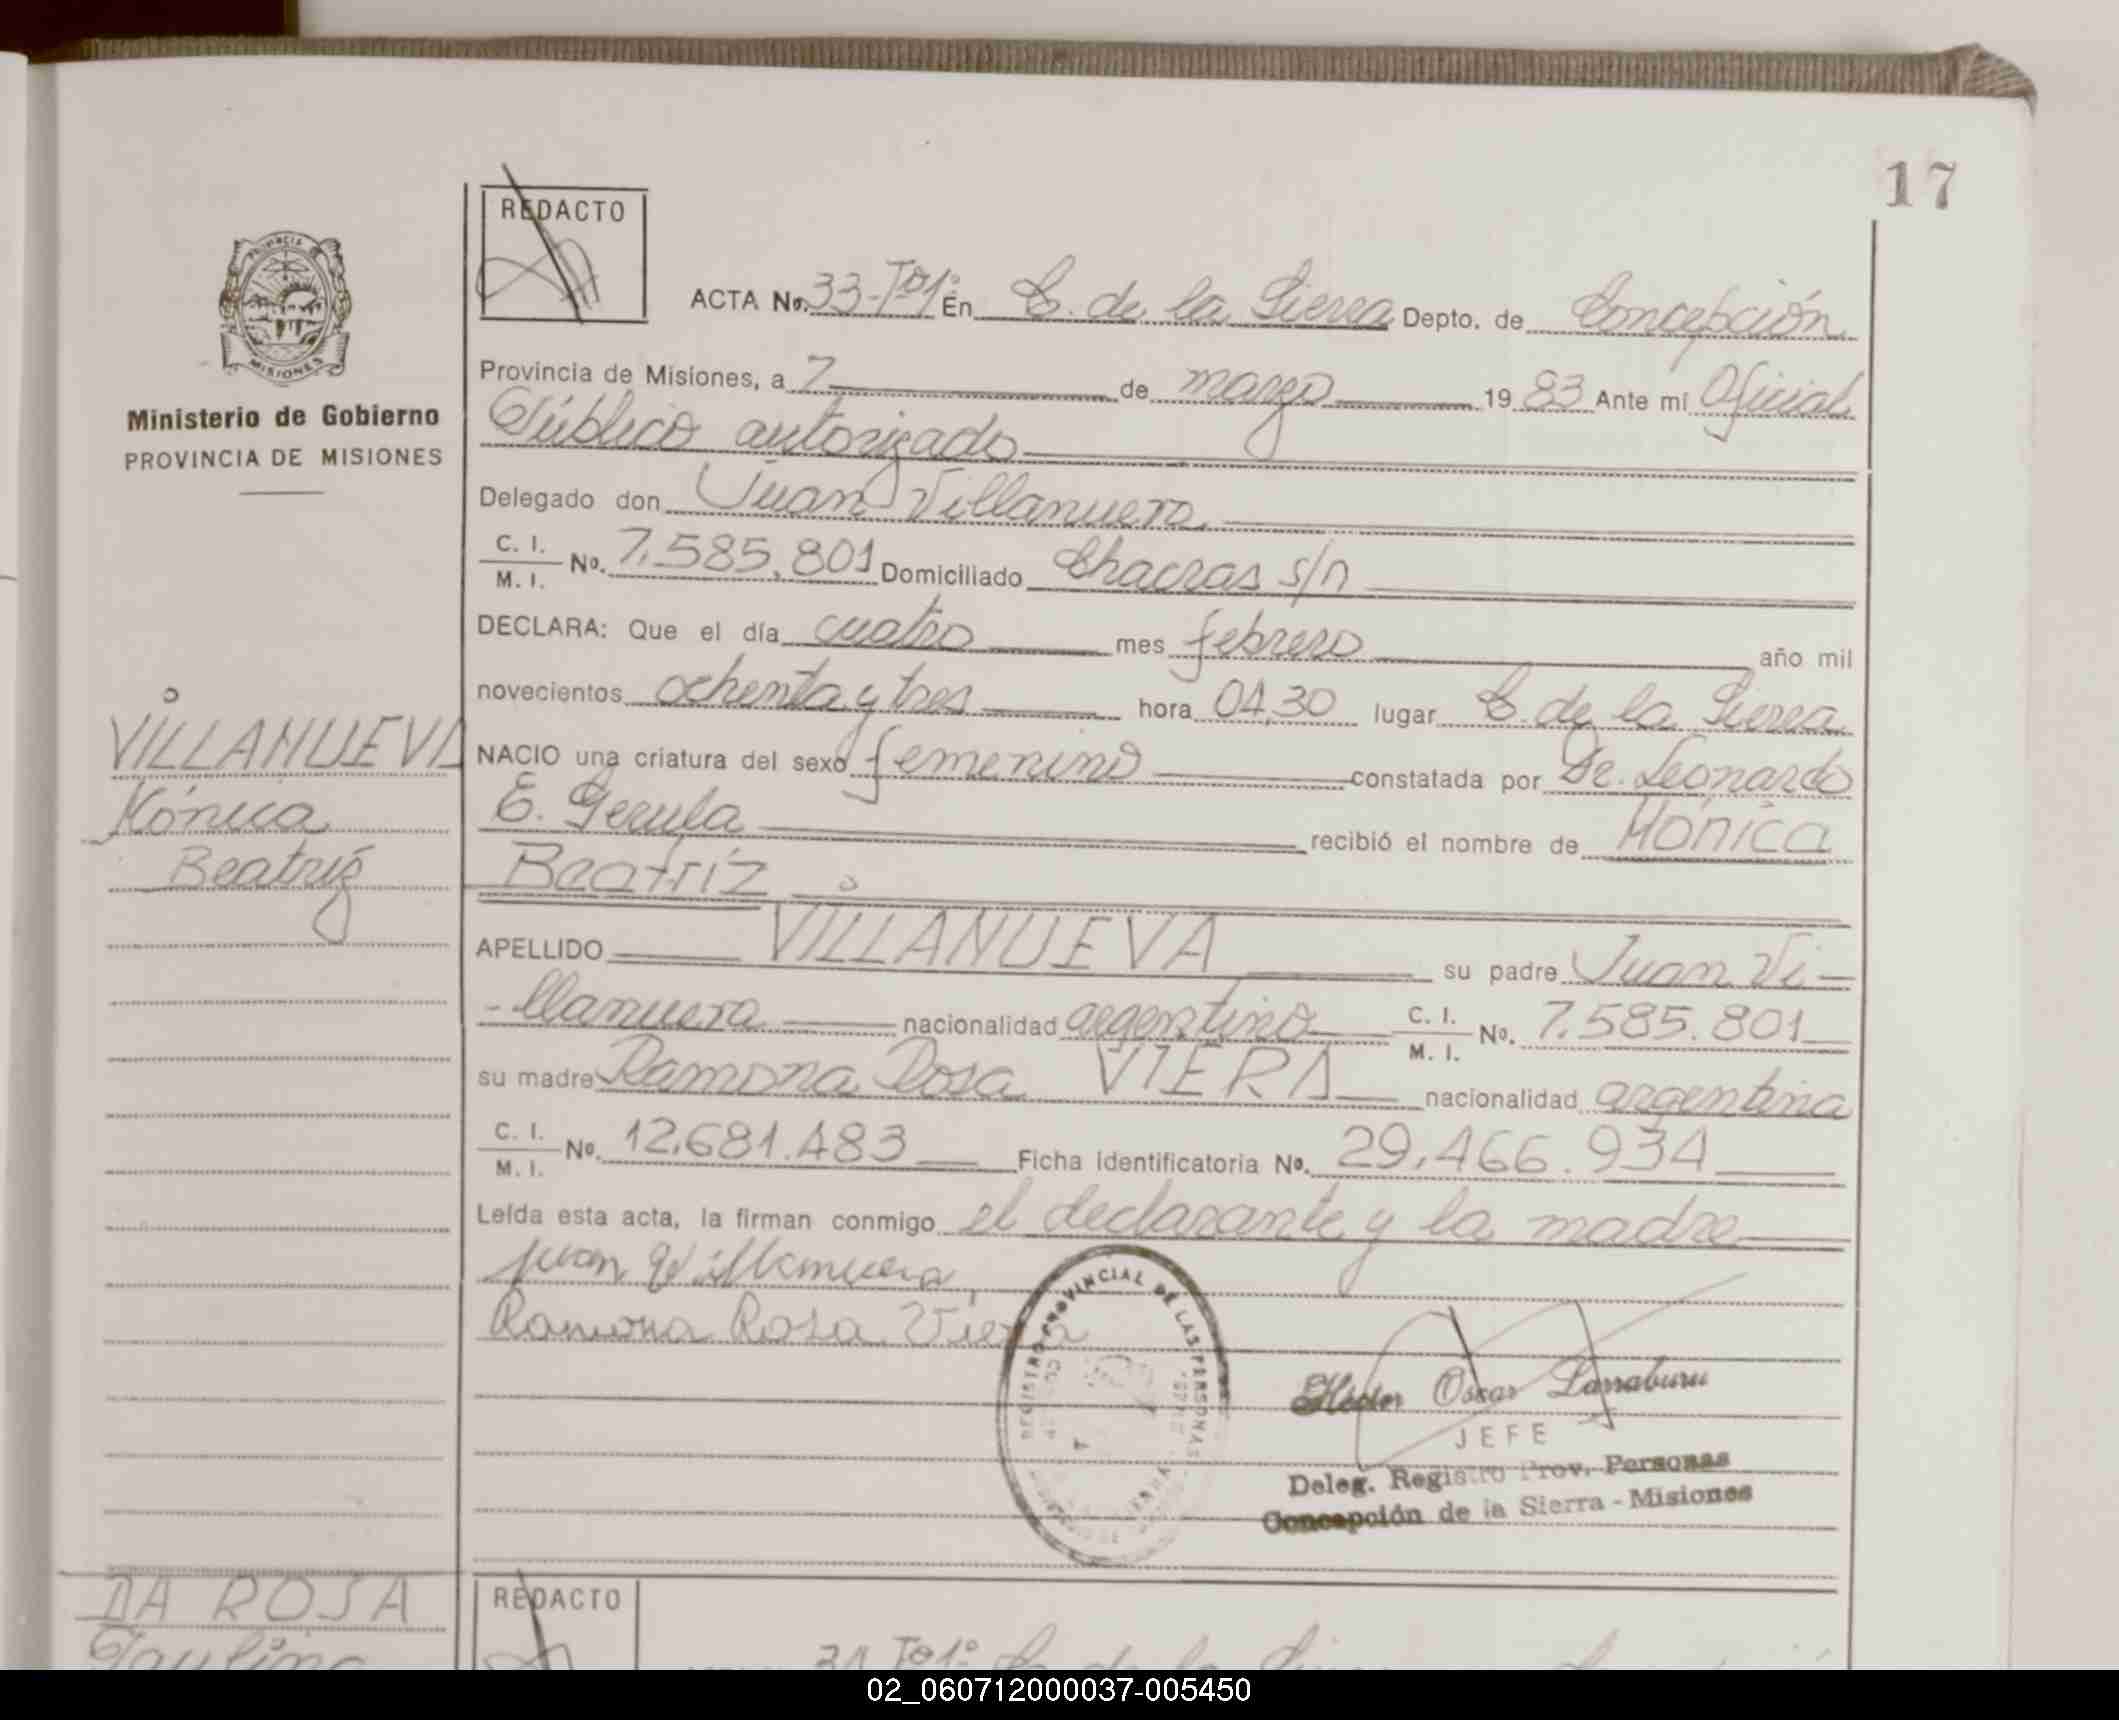 17
REDACTO
ACTA No. 33-Tº1º En C. de la Sierra Depto. de Concepción
Provincia de Misiones, a 7 de marzo 19 83 Ante mí Oficial
Público autorizado
Delegado don Juan Villanueva
C. I. / M. I. No. 7.585.801 Domiciliado Chacras s/n
DECLARA: Que el día cuatro mes febrero año mil
novecientos ochenta y tres hora 04,30 lugar C. de la Sierra
NACIO una criatura del sexo femenino constatada por Dr. Leonardo
E. Gerula recibió el nombre de MÓNICA
BEATRIZ
APELLIDO VILLANUEVA su padre Juan Vi-
-llanueva nacionalidad argentino C. I. / M. I. No. 7.585.801
su madre Ramona Rosa VIERA nacionalidad argentina
C. I. / M. I. No. 12.681.483 Ficha identificatoria No. 29.466.934
Leída esta acta, la firman conmigo el declarante y la madre
Juan Villanueva
Ramona Rosa Viera
REGISTRO PROVINCIAL DE LAS PERSONAS
Héctor Oscar Larraburu
JEFE
Deleg. Registro Prov. Personas
Concepción de la Sierra - Misiones
PROVINCIA
MISIONES
Ministerio de Gobierno
PROVINCIA DE MISIONES
VILLANUEVA
Mónica
Beatriz
DA ROSA
REDACTO
34 Tº1º C. de la Sierra
02_060712000037-005450